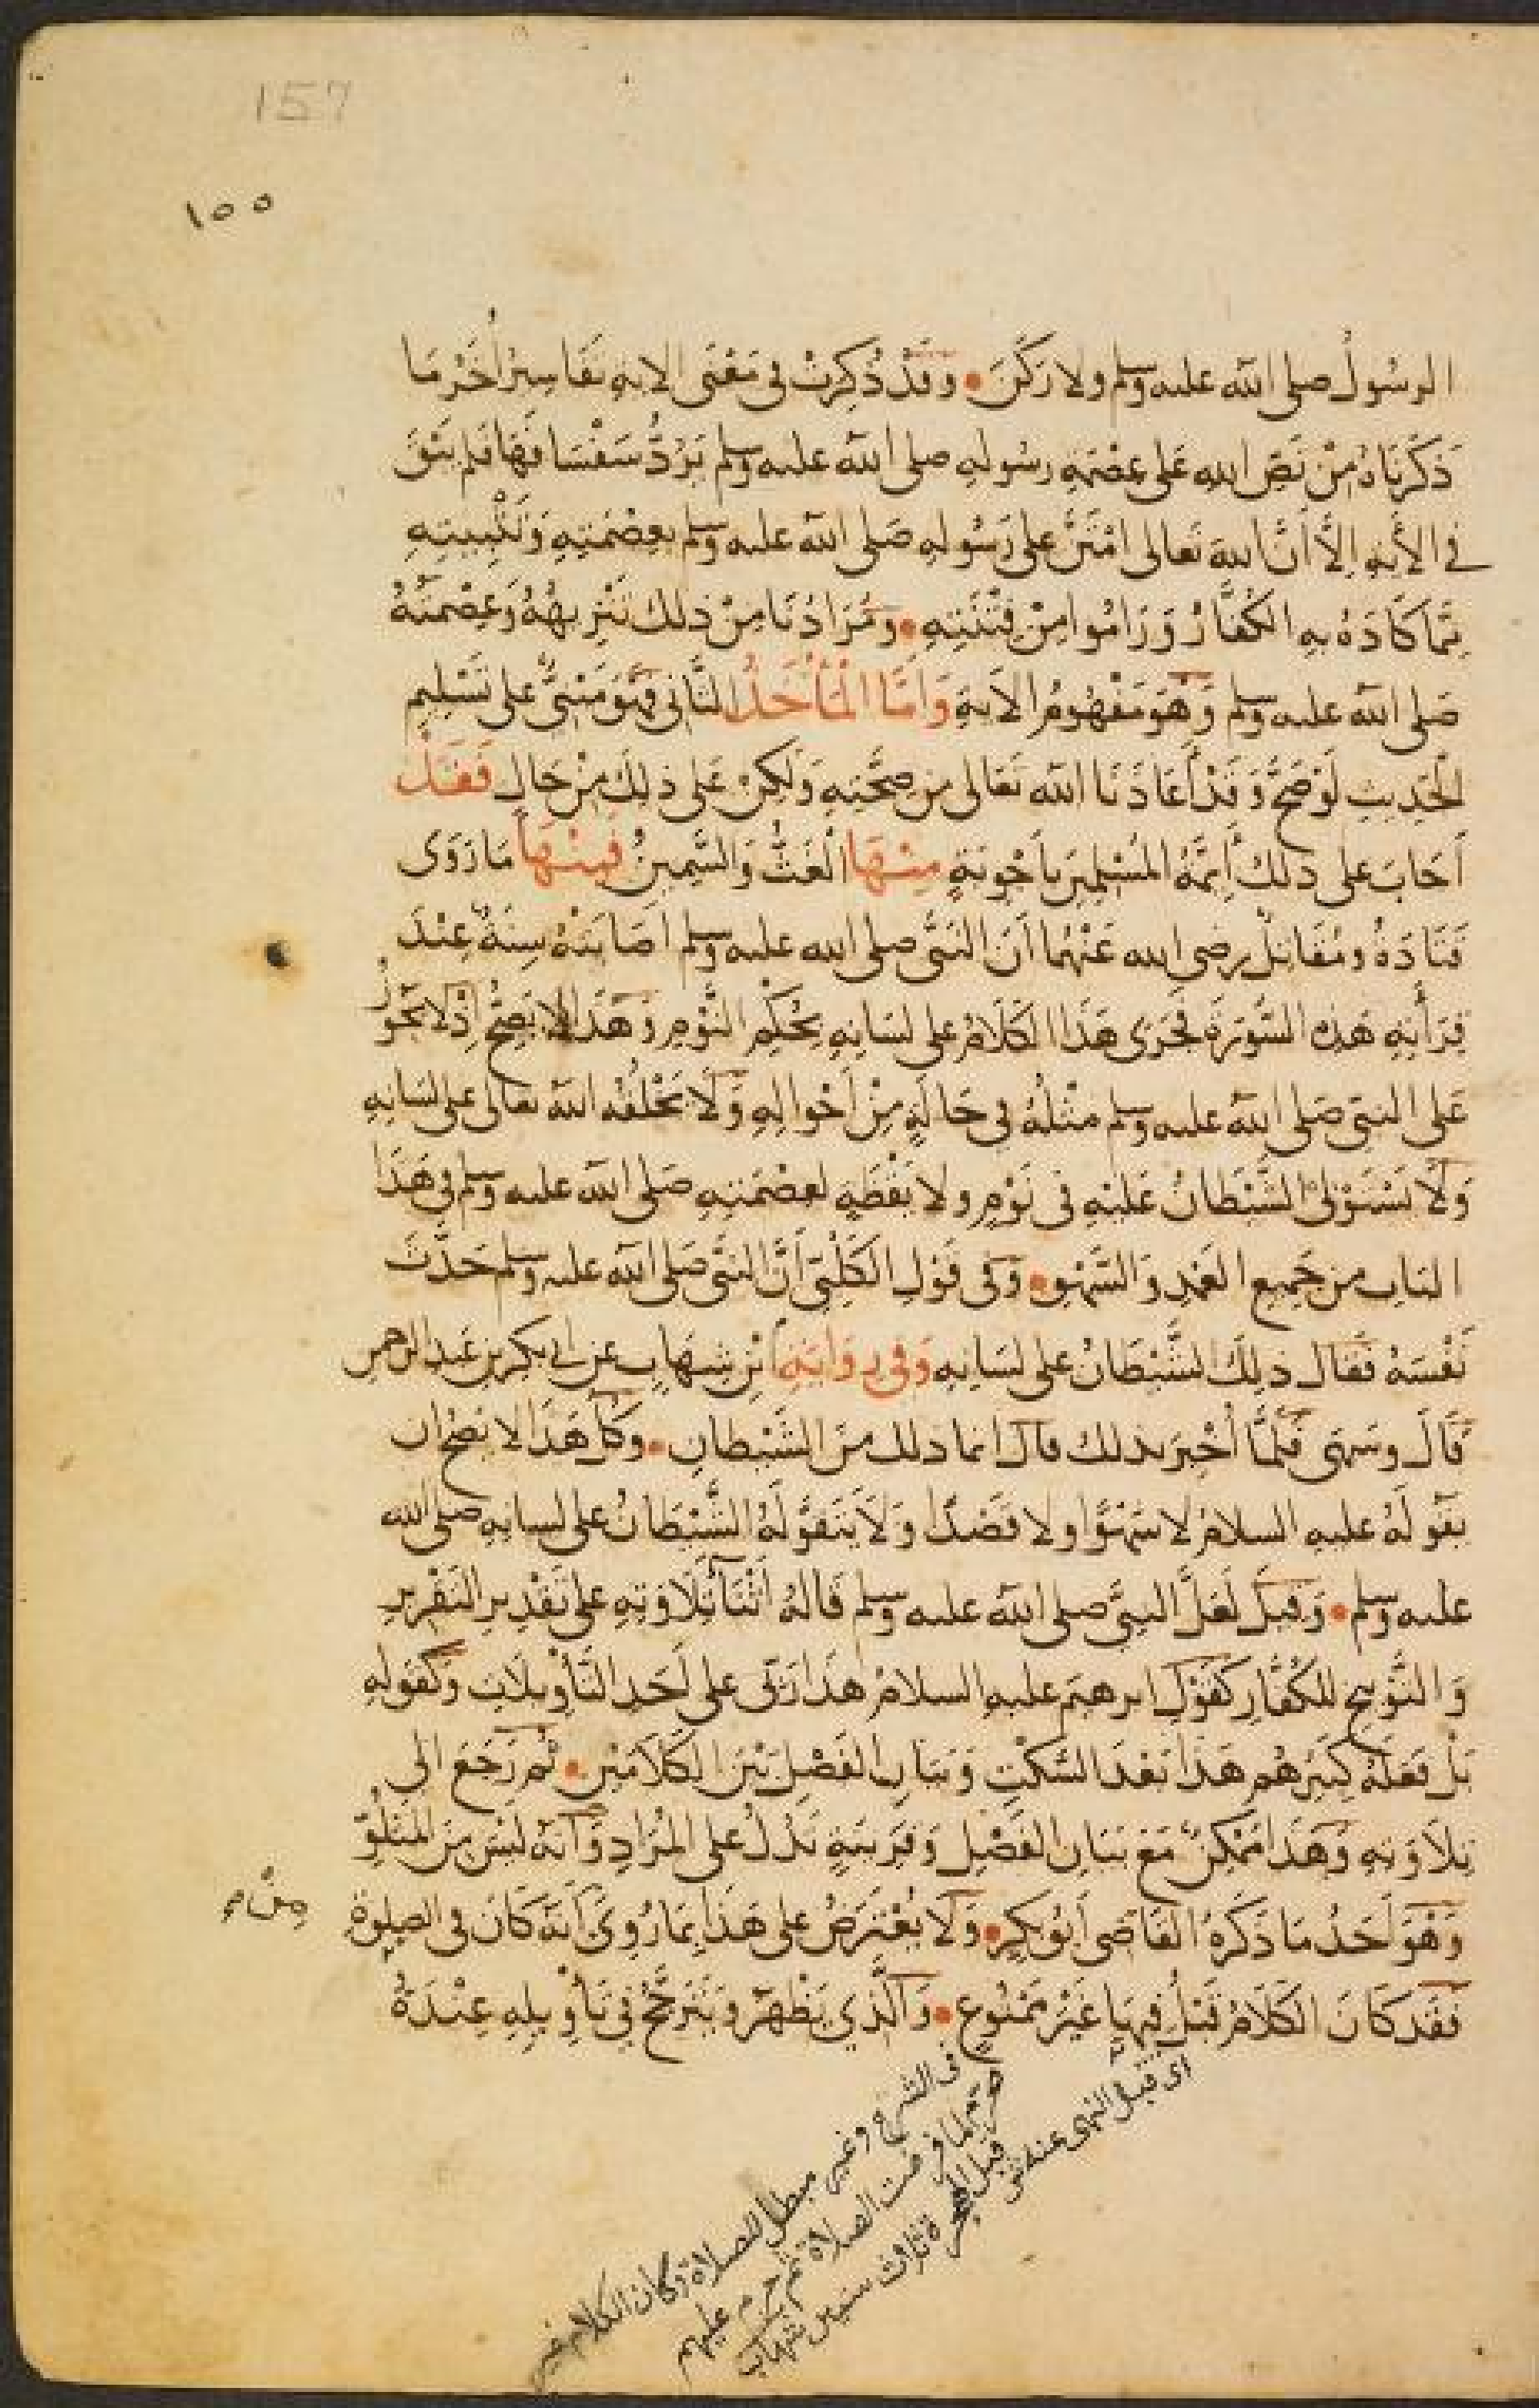 157
١٥٥
الرسُولُ صلى الله عليه وسلم ولا ركَنَ • وقَدْ ذُكِرتْ في مَعْنَى الاية تَفَاسِيْرُ أُخَرُ مَا
ذَكَرْنَاهُ مِنْ نَصِّ الله عَلى عِصْمَةِ رسُولهِ صلى الله عليه وسلم تَرُدُّ سَفْسَافَهَا فلم يَبْقَ
في الأيةِ الِاَّ أَنَّ اللهَ تَعالى امْتَنَّ على رَسُولهِ صَلى الله عليه وسلم بعِصْمَتِهِ وَتَثْبِيتِهِ
مِمَّا كَادَهُ بهِ الكُفَّارُ وَرَامُوا مِنْ فِتْنَتِهِ • ومُرَادُنَا مِنْ ذلك تَنْزِيهُهُ وَعِصْمَتُهُ
صَلى الله عليه وسلم وَهُوَ مَفْهُومُ الايَةِ وَاَمَّا المَأْخَذُ الثَّانى فهُوَ مَبْنِىٌّ على تَسْلِيمِ
الحَدِيثِ لَوْ صَحَّ وَقَدْ أَعَاذَنَا الله تَعَالى مِن صِحَّتِهِ وَلكِنْ عَلى كل مِنْ حَالٍ فَقَدْ
أَجَابَ على ذلكَ أَيِمَّةُ المُسْلِمِينَ بأَجْوِبَةٍ مِنْهَا الغَثُّ وَالسَّمِينُ فَمِنْهَا مَا رَوَى
قَتَادَةُ ومُقَاتِلٌ رضى الله عَنْهُما أَنَ النَبىَّ صلى الله عليه وسلم أَصَابَتْهُ سِنَةٌ عِنْدَ
قِرَأَتِهِ هَذِهِ السُّورَةَ فجَرَى هَذَا الكَلَامُ على لسَانِهِ بحُكْمِ النَّوْمِ وَهَذَا لا يَصِحُّ إِذْ لا يَجُوزُ
عَلى النبى صَلى الله عليه وسلم مثْلُهُ فى حَالَةٍ مِنْ أَحْوالِهِ وَلَا يَخْلُقُه الله تعالى على لسَانِهِ
وَلَا يَسْتَوْلى الشَّيْطَانُ عَلَيْهِ فى نَوْمٍ ولا يَقْظَةٍ لعِصْمَتِهِ صَلى الله عليه وسلم فى هَذَا
البَابِ من جَمِيعِ العَمْدِ وَالسَّهْوِ • وَفى قَوْلِ الكَلْبىِّ أَنَّ النبىَّ صَلى الله عليه وسلم حَدَّثَ
نَفْسَهُ فَقَالَ ذلِكَ الشَّيْطَانُ على لسَانِهِ وَفى رِوَايَةِ ابْنِ شِهَابٍ عن ابى بكرِ بنِ عَبْد الرحمن
قَالَ وسَهَى فَلَمَّا أُخْبِرَ بذلك قال انما ذلك مِنَ الشَّيْطانِ • وكُلُّ هَذَا لا يَصِحُّ ان
يَقُولَهُ عليهِ السلامُ لا سَهْوًا ولا قَصْدًا وَلَا يَتَقَوَّلَهُ الشَّيْطَانُ على لسانِهِ صلى الله
عليه وسلم • وَقِيلَ لَعَلَّ النبىَّ صلى الله عليه وسلم قَالهُ اَثْنَآءَ تِلَاوَتِهِ على تَقْدِيرِ التَقْرِيرِ
وَالتَّوْبيخِ للكُفَّارِ كقَوْلِ ابرهيم عليهِ السلامُ هذَا رَبّى على اَحَدِ التَّأْوِيلَاتِ وَكقَولِهِ
بَلْ فَعَلَهُ كَبيْرُهُم هَذَا بَعْدَ السَّكْتِ وَبيَانِ الفَصْلِ بَيْنَ الكَلَامَيْنِ • ثُم رَجَعَ الى
تِلَاوَتِهِ وَهَذَا مُمْكِنٌ مَعَ بَيَانِ الفَصْلِ وَقَرِينَةٍ تَدُلُّ على المُرَادِ وَأَنَّهُ لَيْسَ مِنَ المَتْلُوِّ
وَهُوَ اَحَدُ مَا ذَكَرَهُ القَاضِى أَبُو بَكرٍ • وَلَا يُعْتَرَضُ على هَذَا بِمَا رُوِىَ اَنَّهُ كَانَ فى الصلوةِ
فَقَد كَانَ الكَلَامُ قَبْلُ فِيهَا غَيْرَ مَمْنُوعٍ • وَالَّذِي يَظْهَرُ وَيَتَرَجَّحُ فِي تَأْوِيلِهِ عِنْدَهُ
اى قبل النهى عنه
فى الشرع وغير مبطل للصلاة وكان الكلام غير
لما فرضت الصلاة ثم حرم عليهم
قبل الهجرة بثلاث سنين